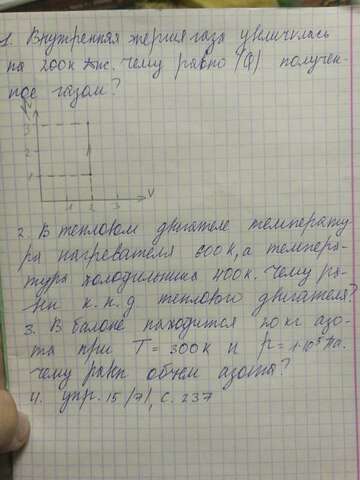 1. Внутренняя энергия газа увеличилась
на 200кДж. Чему равно (Q) получен-
ное газом?
3
2
1
1 2 3 V
2. В тепловом двигателе температу
ра нагревателя 600к, а темпера-
тура холодильника 400к. Чему ра-
вен к.п.д теплового двигателя?
3. В балоне находится 20кг азо-
та при T = 300к и p = 1·10⁵ Па.
Чему равен объем азота?
4. упр. 15 /7/, с. 237